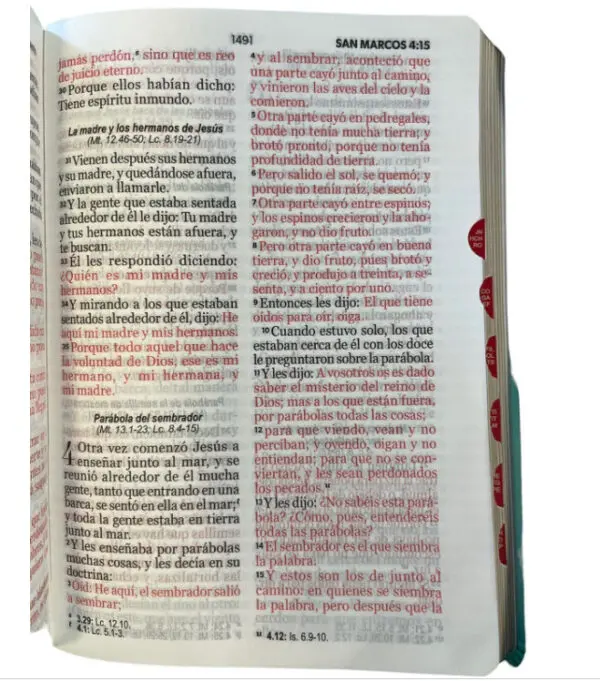 1491
SAN MARCOS 4:15
jamás perdón,ᵉ sino que es reo
de juicio eterno.
30 Porque ellos habían dicho:
Tiene espíritu inmundo.
La madre y los hermanos de Jesús
(Mt. 12.46-50; Lc. 8.19-21)
31 Vienen después sus hermanos
y su madre, y quedándose afuera,
enviaron a llamarle.
32 Y la gente que estaba sentada
alrededor de él le dijo: Tu madre
y tus hermanos están afuera, y
te buscan.
33 Él les respondió diciendo:
¿Quién es mi madre y mis
hermanos?
34 Y mirando a los que estaban
sentados alrededor de él, dijo: He
aquí mi madre y mis hermanos.
35 Porque todo aquel que hace
la voluntad de Dios, ese es mi
hermano, y mi hermana, y
mi madre.
Parábola del sembrador
(Mt. 13.1-23; Lc. 8.4-15)
4 Otra vez comenzó Jesús a
enseñar junto al mar, y se
reunió alrededor de él mucha
gente, tanto que entrando en una
barca, se sentó en ella en el mar;ᶠ
y toda la gente estaba en tierra
junto al mar.
2 Y les enseñaba por parábolas
muchas cosas, y les decía en su
doctrina:
3 Oíd: He aquí, el sembrador salió
a sembrar;
3.29: Lc. 12.10.
4.1: Lc. 5.1-3.
4 y al sembrar, aconteció que
una parte cayó junto al camino,
y vinieron las aves del cielo y la
comieron.
5 Otra parte cayó en pedregales,
donde no tenía mucha tierra; y
brotó pronto, porque no tenía
profundidad de tierra.
6 Pero salido el sol, se quemó; y
porque no tenía raíz, se secó.
7 Otra parte cayó entre espinos;
y los espinos crecieron y la aho-
garon, y no dio fruto.
8 Pero otra parte cayó en buena
tierra, y dio fruto, pues brotó y
creció, y produjo a treinta, a se-
senta, y a ciento por uno.
9 Entonces les dijo: El que tiene
oídos para oír, oiga.
10 Cuando estuvo solo, los que
estaban cerca de él con los doce
le preguntaron sobre la parábola.
11 Y les dijo: A vosotros os es dado
saber el misterio del reino de
Dios; mas a los que están fuera,
por parábolas todas las cosas;
12 para que viendo, vean y no
perciban; y oyendo, oigan y no
entiendan; para que no se con-
viertan, y les sean perdonados
los pecados.
13 Y les dijo: ¿No sabéis esta pará-
bola? ¿Cómo, pues, entenderéis
todas las parábolas?
14 El sembrador es el que siembra
la palabra.
15 Y estos son los de junto al
camino: en quienes se siembra
la palabra, pero después que la
4.12: Is. 6.9-10.